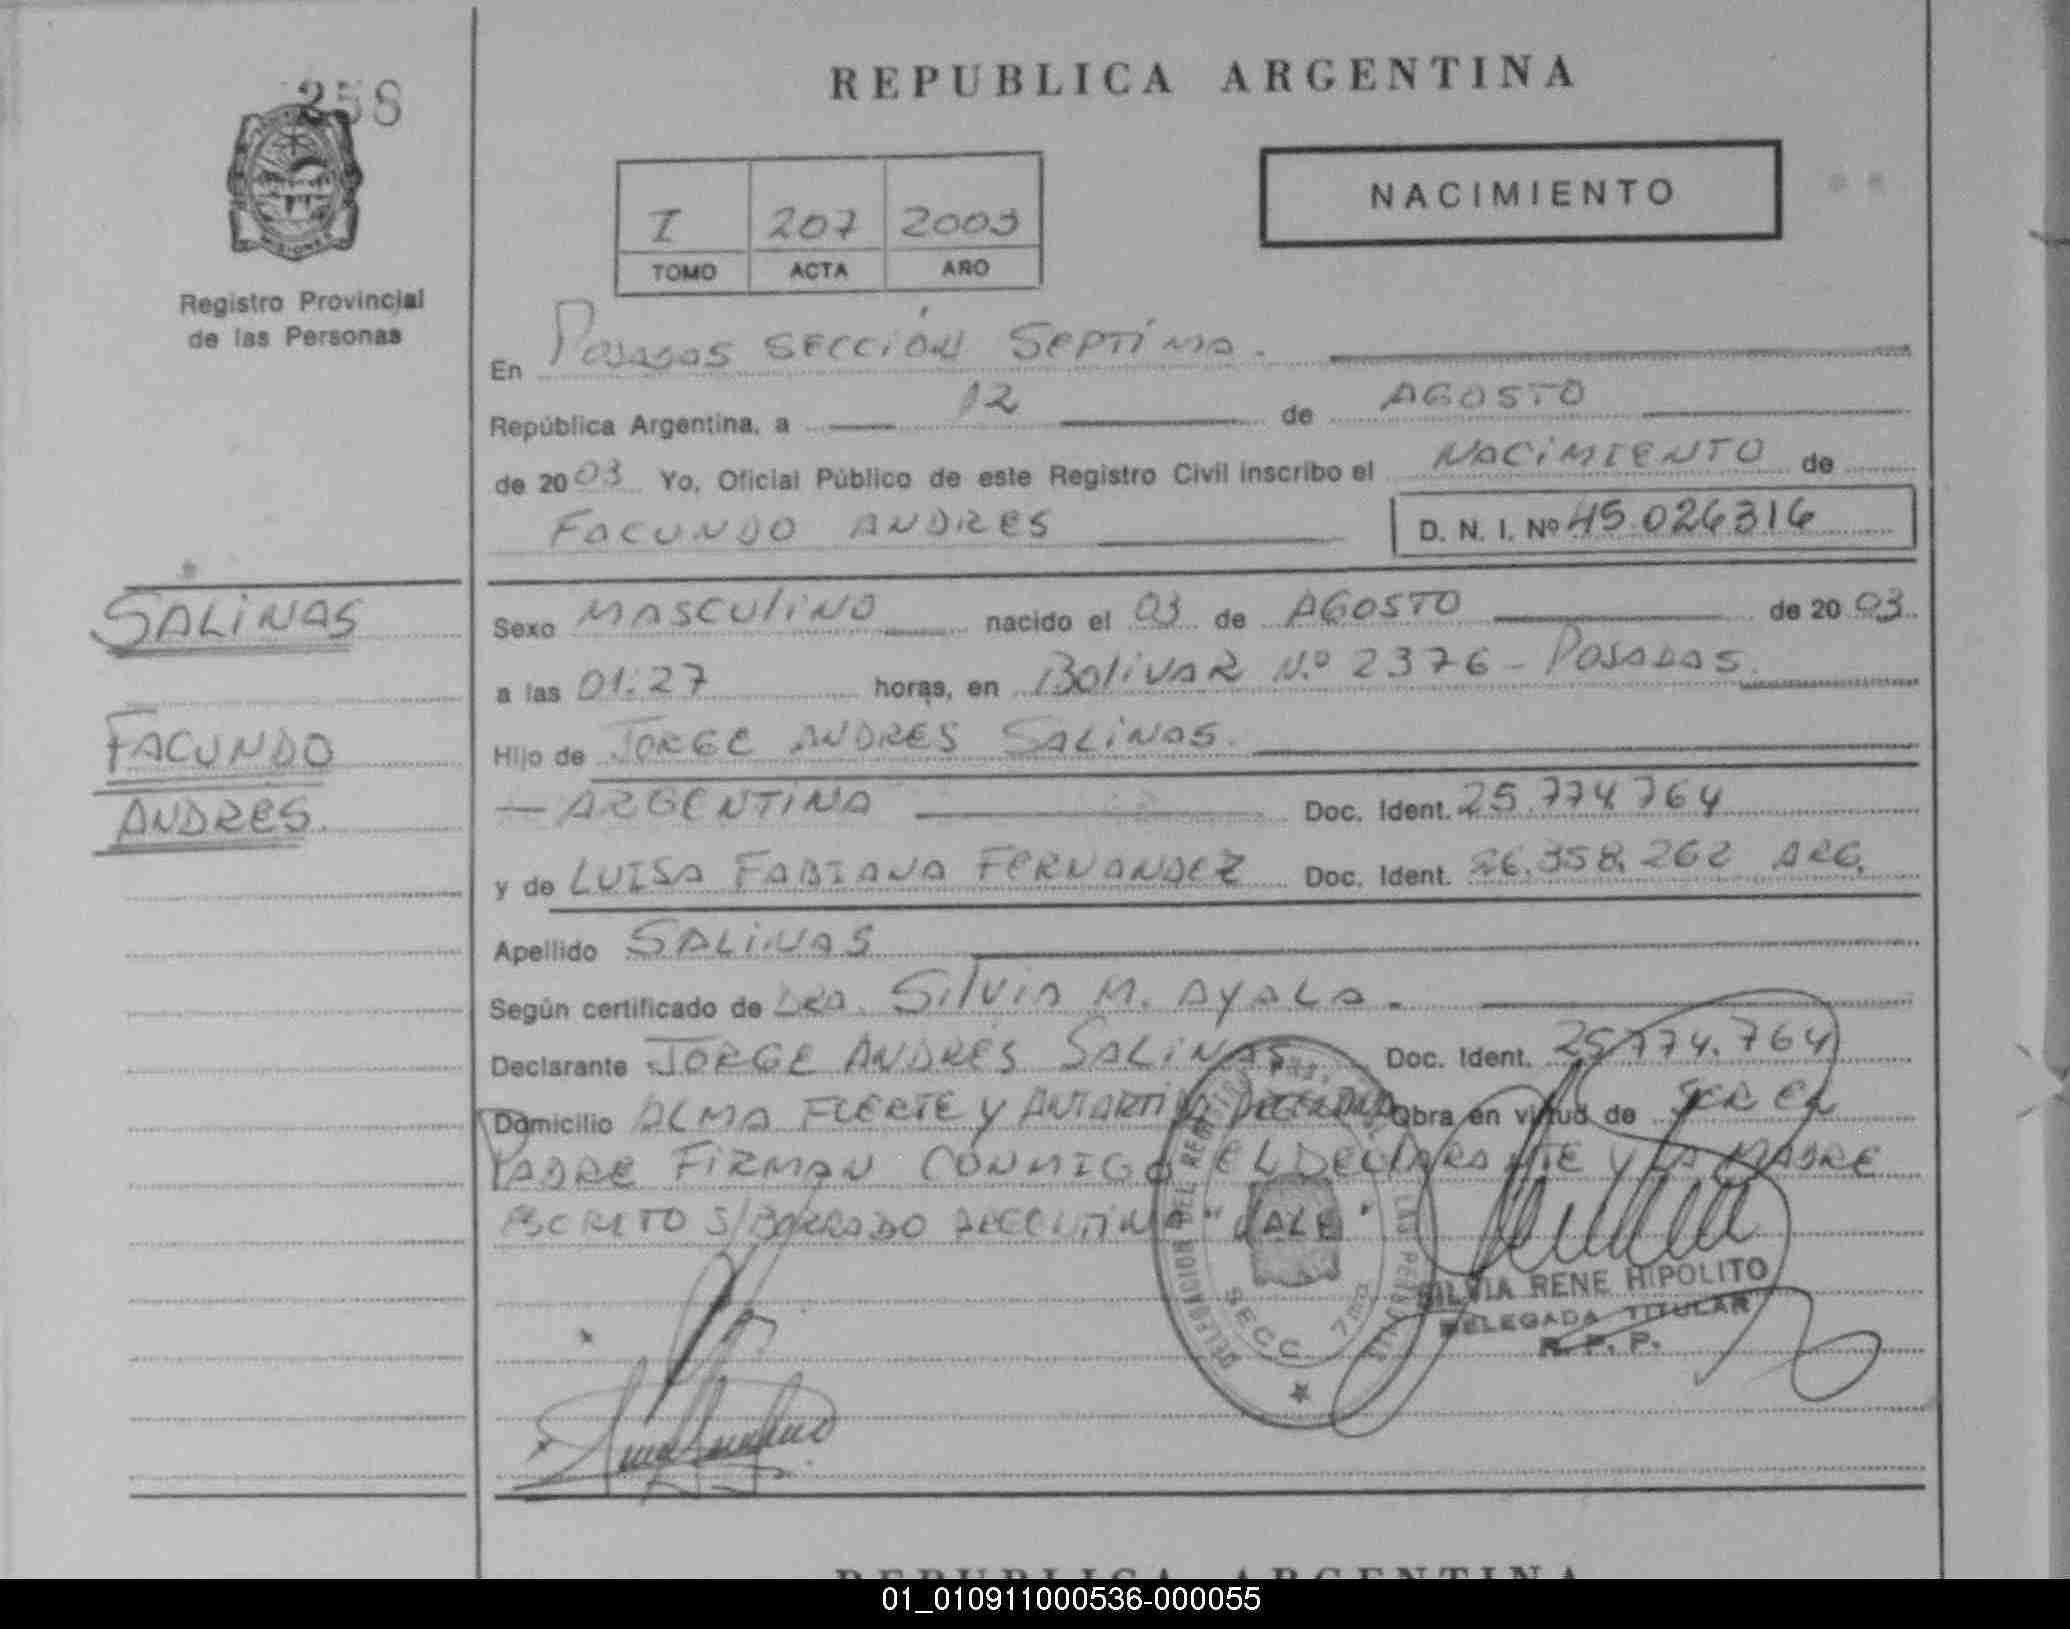 258
REPUBLICA ARGENTINA
NACIMIENTO
I 207 2003
TOMO ACTA AÑO
MISIONES
Registro Provincial
de las Personas
En Posadas SECCIÓN SEPTIMA.
República Argentina, a 12 de AGOSTO
de 2003 Yo, Oficial Público de este Registro Civil inscribo el NACIMIENTO de
FACUNDO ANDRES D. N. I. Nº 45.026316
SALINAS
FACUNDO
ANDRES.
Sexo MASCULINO nacido el 03 de AGOSTO de 2003
a las 01:27 horas, en BOLIVAR Nº 2376 - POSADAS.
Hijo de JORGE ANDRES SALINAS.
ARGENTINA Doc. Ident. 25.774.764
y de LUISA FABIANA FERNANDEZ Doc. Ident. 26.358.262 ARG.
Apellido SALINAS
Según certificado de DRA. SILVIA M. AYALA.
Declarante JORGE ANDRES SALINAS Doc. Ident. 25.774.764
Domicilio ALMA FUERTE Y ANTARTIDA ARGENTINA Obra en virtud de SER EL
PADRE FIRMAN CONMIGO EL DECLARANTE Y LA MADRE
ESCRITO S/BORRADO ARGENTINA "VALE"
SECC. 7ma
SILVIA RENE HIPOLITO
DELEGADA TITULAR
R. P. P.
REPUBLICA ARGENTINA
01_010911000536-000055